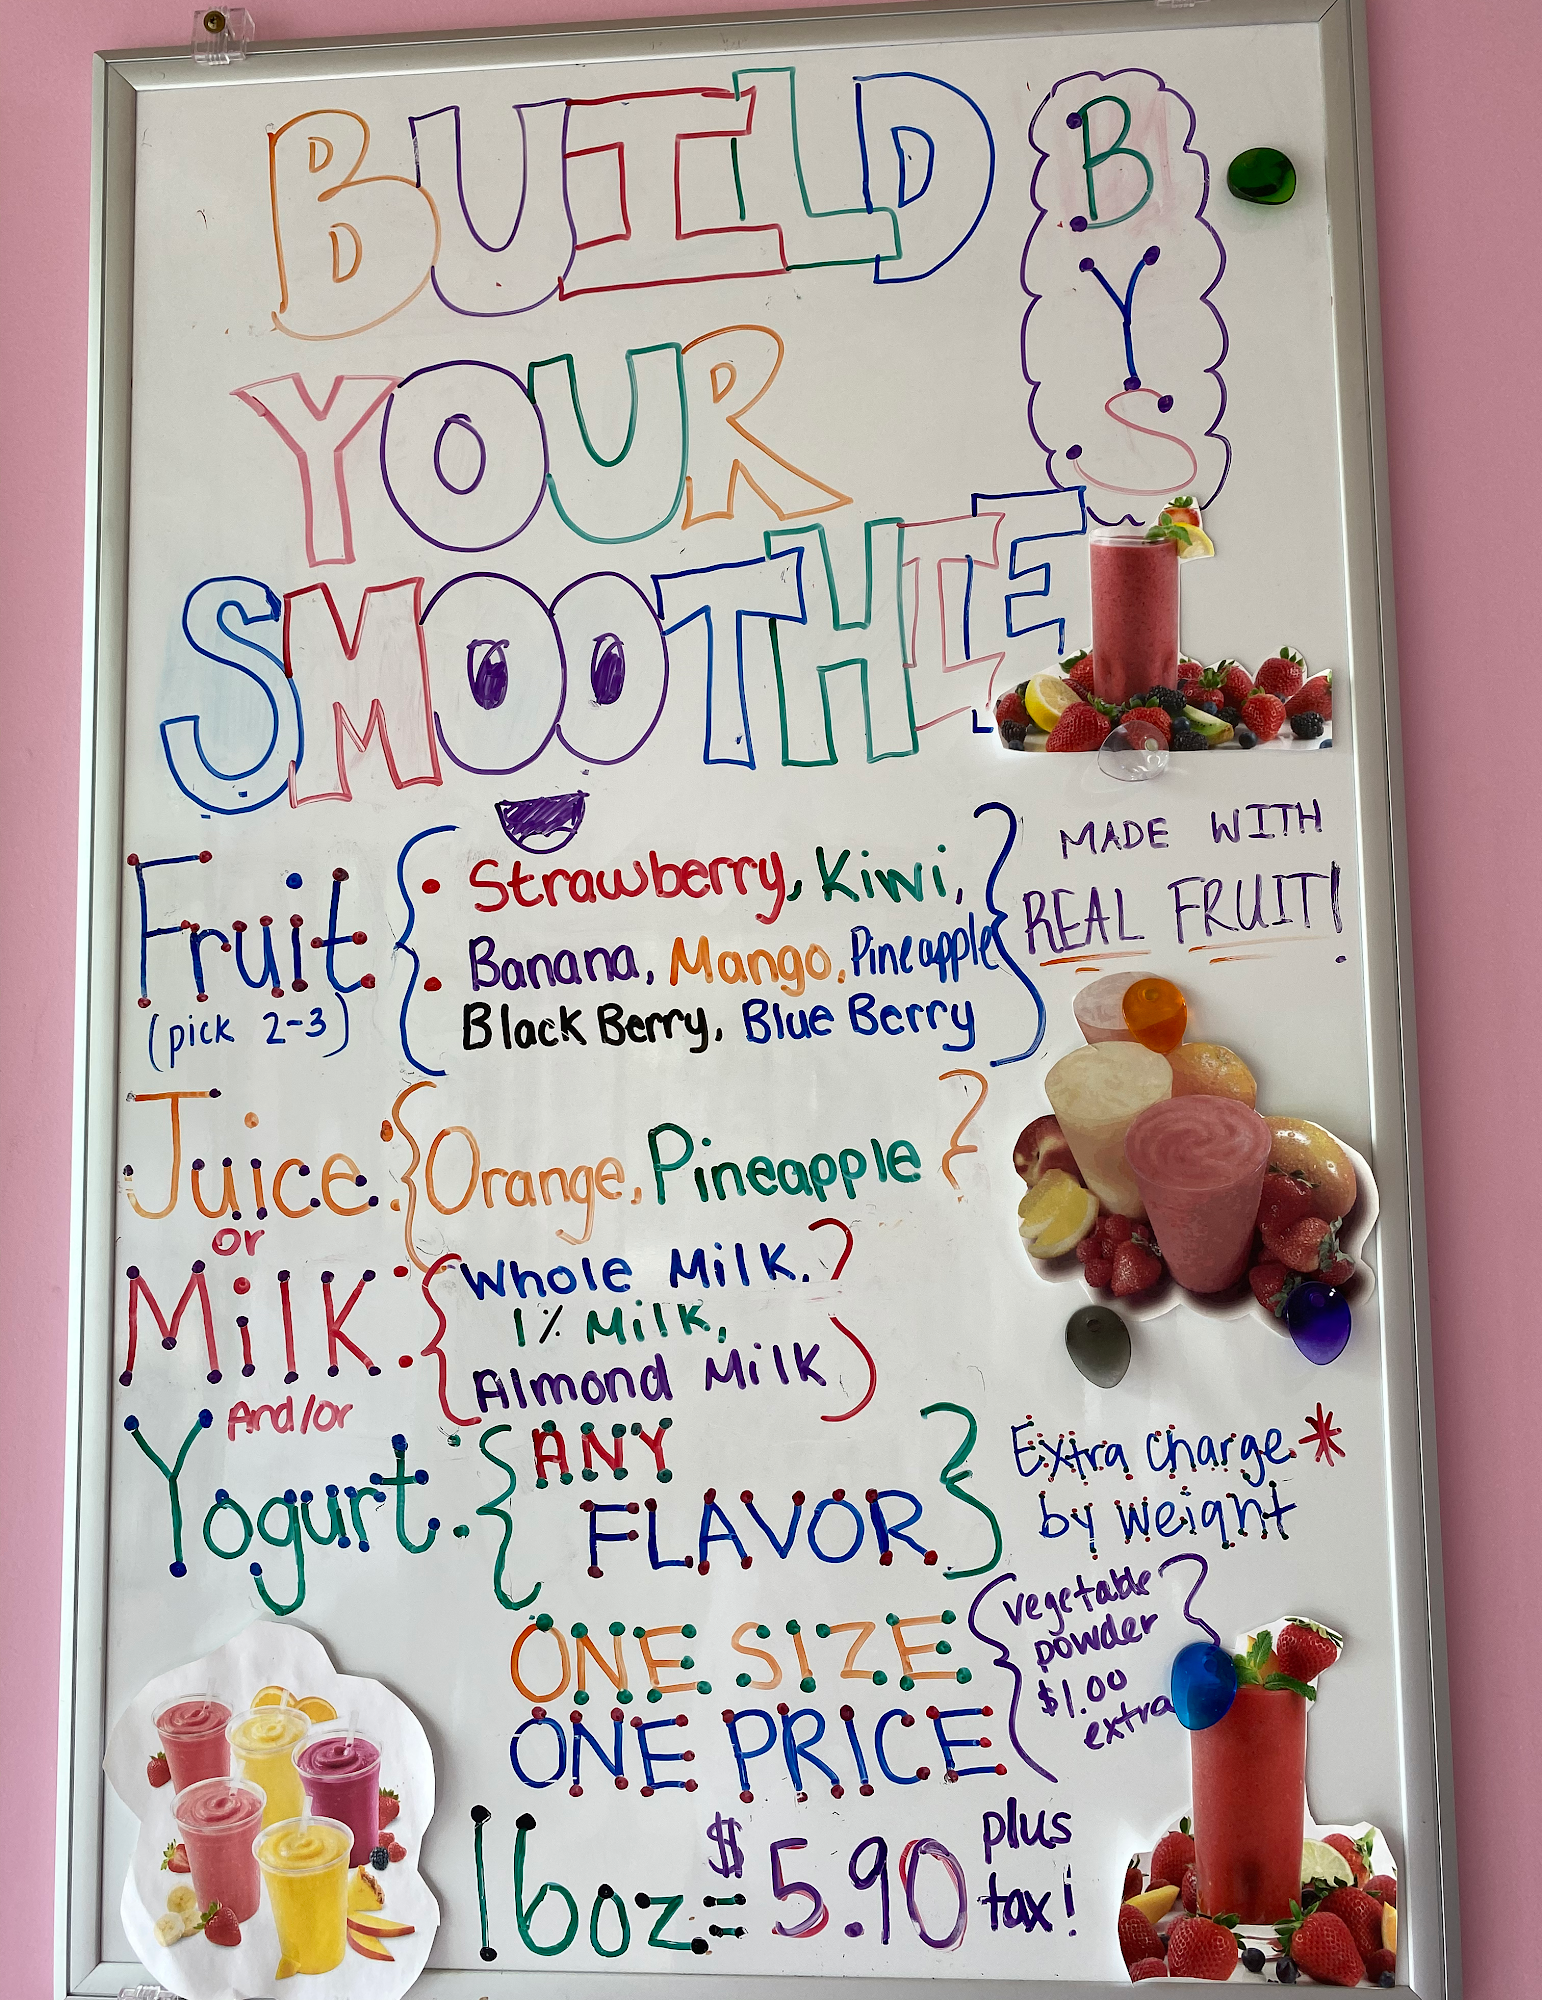 BUILD
YOUR
SMOOTHIE
B
Y
S
MADE WITH
REAL FRUIT!
Fruit
(pick 2-3)
Strawberry, Kiwi,
Banana, Mango, Pineapple
BlackBerry, BlueBerry
Juice: Orange, Pineapple
or
Milk: Whole Milk,
1% Milk,
Almond Milk
And/or
Yogurt: ANY
FLAVOR
Extra charge *
by weight
ONE SIZE
ONE PRICE
vegetable
powder
$1.00
extra
16oz = $5.90 plus
tax!